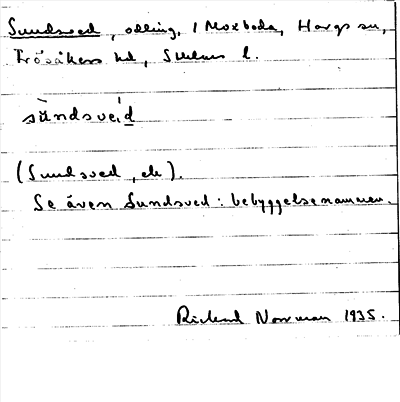 Sundsved, odling, i Moxboda, Hargs sn,
Frösåkers hd, Sthlms l.
sùndsveͥd
(Sundsved, ek).
Se även Sundsved: bebyggelsenamnen.
Rickard Norrman 1935.